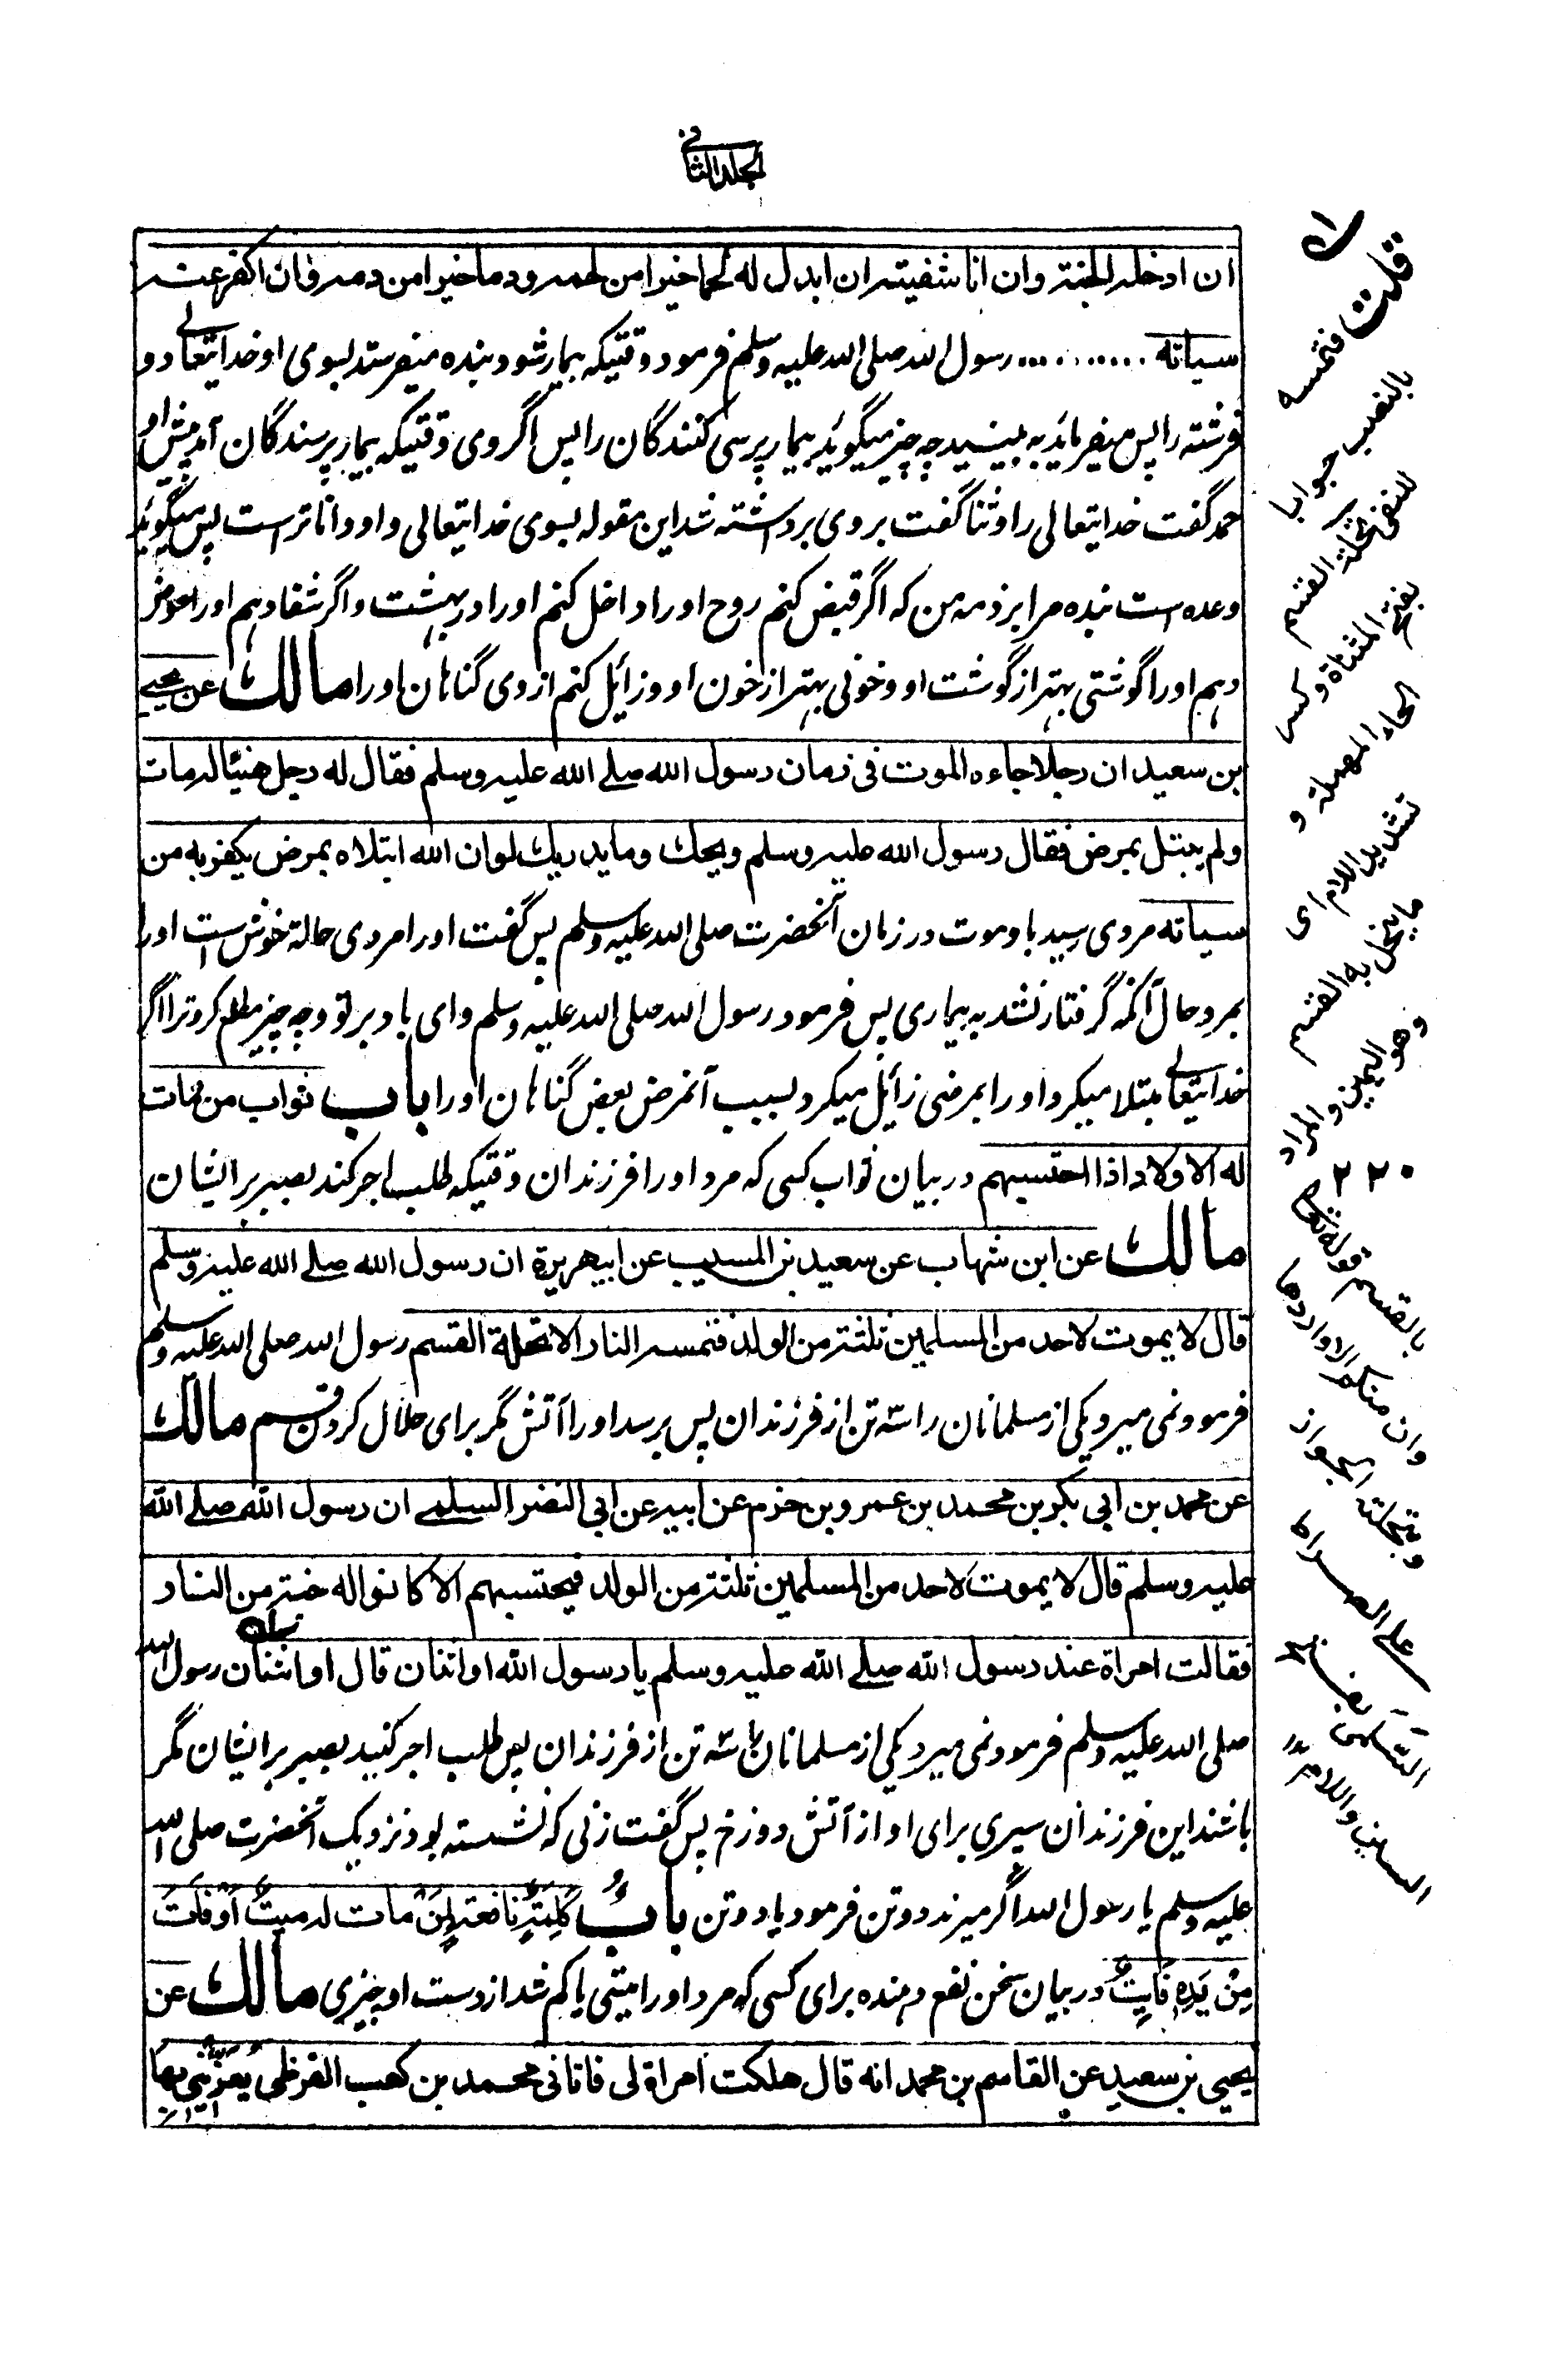 المجلد الثانی
ان ادخله الجنة وان انا شفیته ان ابدل له لحما خیرا من لحمه ودما خیرا من دمه وان اکفر عنه
سیاته .......... رسول الله صلی الله علیه وسلم فرمود وقتیکه بیمار شود بنده میفرستد بسوی او خدایتعالی دو
فرشته را پس میفرماید به بینید چه چیز میگوید بیمار پرسی کنندگان را پس اگر وی وقتیکه بیمار پرسندگان آمد پیش او
حمد گفت خدایتعالی را و ثنا گفت بر وی برداشته شد این مقوله بسوی خدایتعالی و او داناتر است پس میگوید
وعده است بنده مرا بر ذمه من که اگر قبض کنم روح او را داخل کنم او را در بهشت و اگر شفا دهم او را عوض
دهم او را گوشتی بهتر از گوشت او و خونی بهتر از خون او و زائل کنم از وی گناهان او را مالك عن یحیی
بن سعید ان رجلا جاءه الموت فی زمان رسول الله صلے الله علیه وسلم فقال له رجل هنیئا له مات
ولم یبتل بمرض فقال رسول الله صلے الله علیه وسلم ویحك وما یدریك لو ان الله ابتلاه بمرض یکفر به من
سیاته مردی رسید با و موت در زمان آنحضرت صلی الله علیه وسلم پس گفت او را مردی حالة خوش است او را
بمرد حال آنکه گرفتار نشد به بیماری پس فرمود رسول الله صلی الله علیه وسلم وای باد بر تو و چه چیز مطلع کرد ترا اگر
خدایتعالی مبتلا میکرد او را بمرضی زائل میکرد بسبب آنمرض بعض گناهان او را باب ثواب من مات
له الاولاد اذا احتسبهم در بیان ثواب کسی که مرد او را فرزندان وقتیکه طلب اجر کند بصبر بر ایشان
مالك عن ابن شهاب عن سعید بن المسیب عن ابیهریرة ان رسول الله صلے الله علیه وسلم
قال لا یموت لاحد من المسلمین ثلثة من الولد فتمسه النار الا تحلة القسم رسول الله صلی الله علیه وسلم
فرمود نمی میرد یکی از مسلمانان را سه تن از فرزندان پس برسد او را آتش مگر برای حلال کردن قسم مالك
عن محمد بن ابی بکر بن محمد بن عمرو بن حزم عن ابیه عن ابی النضر السلمے ان رسول الله صلے الله
علیه وسلم قال لا یموت لاحد من المسلمین ثلثة من الولد فیحتسبهم الا کانوا له جنة من النار
فقالت امراة عند رسول الله صلے الله علیه وسلم یا رسول الله او اثنان قال او اثنان رسول الله
صلی الله علیه وسلم فرمود نمی میرد یکی از مسلمانان را سه تن از فرزندان پس طلب اجر کنید بصبر بر ایشان مگر
باشند این فرزندان سپری برای او از آتش دوزخ پس گفت زنی که نشسته بود نزدیک آنحضرت صلی الله
علیه وسلم یا رسول الله اگر میرند دو تن فرمود یا دو تن بابٌ کَلِمَةٌ نافعة لِمَنْ مات له میتٌ اَوْ فَاتَ
مِنْ یَدِهِ فَایِتٌ در بیان سخن نفع دهنده برای کسی که مرد او را میتی یا کم شد از دست او چیزی مالك عن
یحیی بن سعید عن القاسم بن محمد انه قال هلکت امراة لی فاتانی محمد بن کعب القرظی یُعَزِّینِی بها
قلت فتمسه
بالنصب جوابا
للنفی تحلة القسم
بفتح المثناة وکسر
الحاء المهملة و
تشدید اللام ای
ما ینحل به القسم
وهو الیمین والمراد
بالقسم قوله تعالی
وان منکم الا واردها
علی الصراط